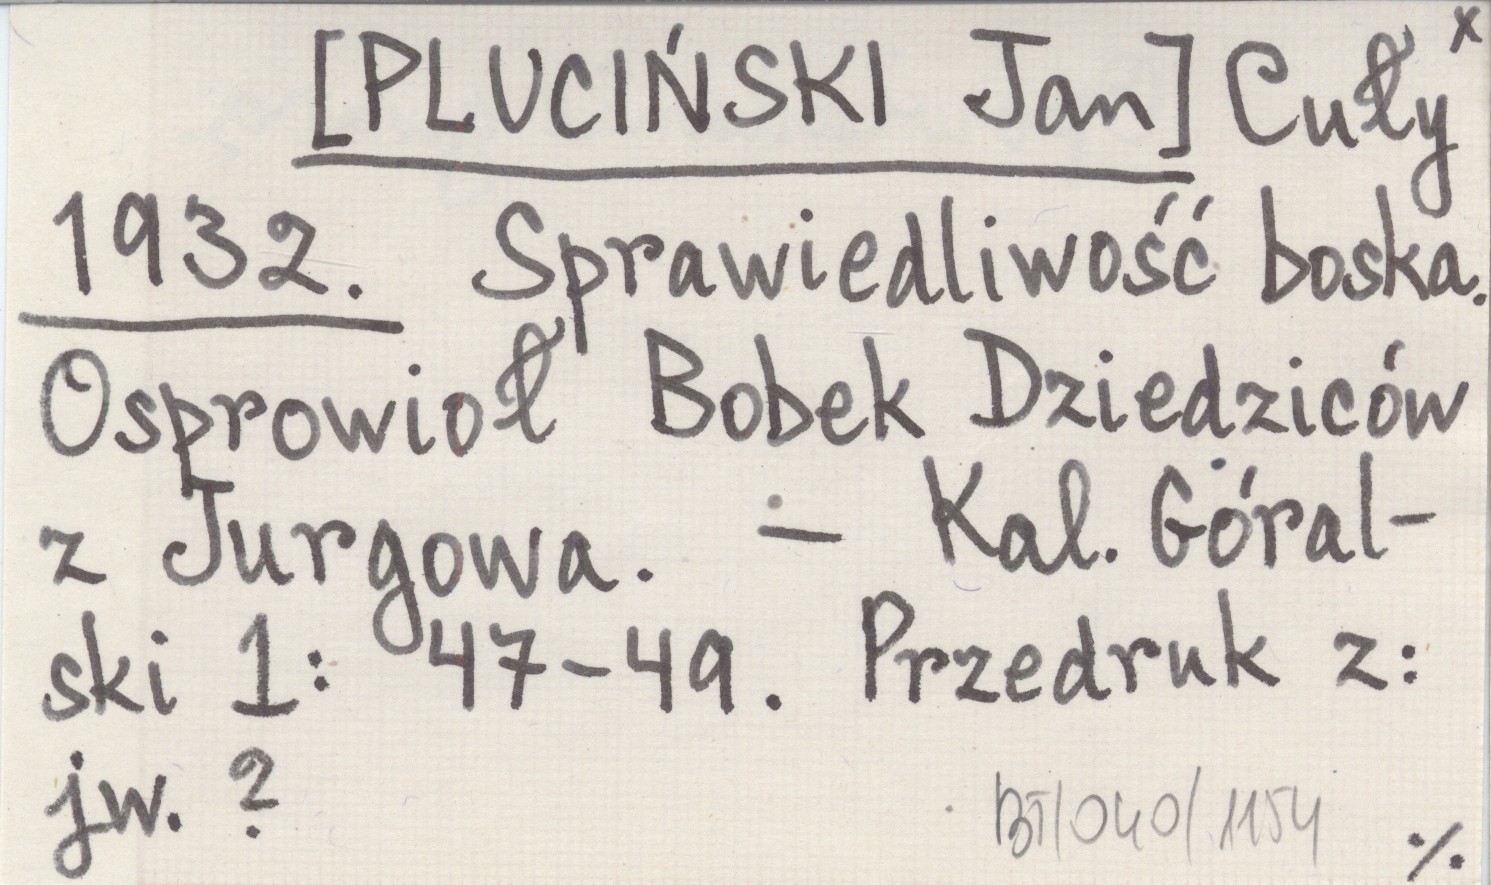 [PLUCIŃSKI Jan] Cuły x
1932. Sprawiedliwość boska.
Osprowioł Bobek Dziedziców
z Jurgowa. – Kal. Góral-
ski 1: 47-49. Przedruk z:
jw. ?
BT/040/1154 ./.